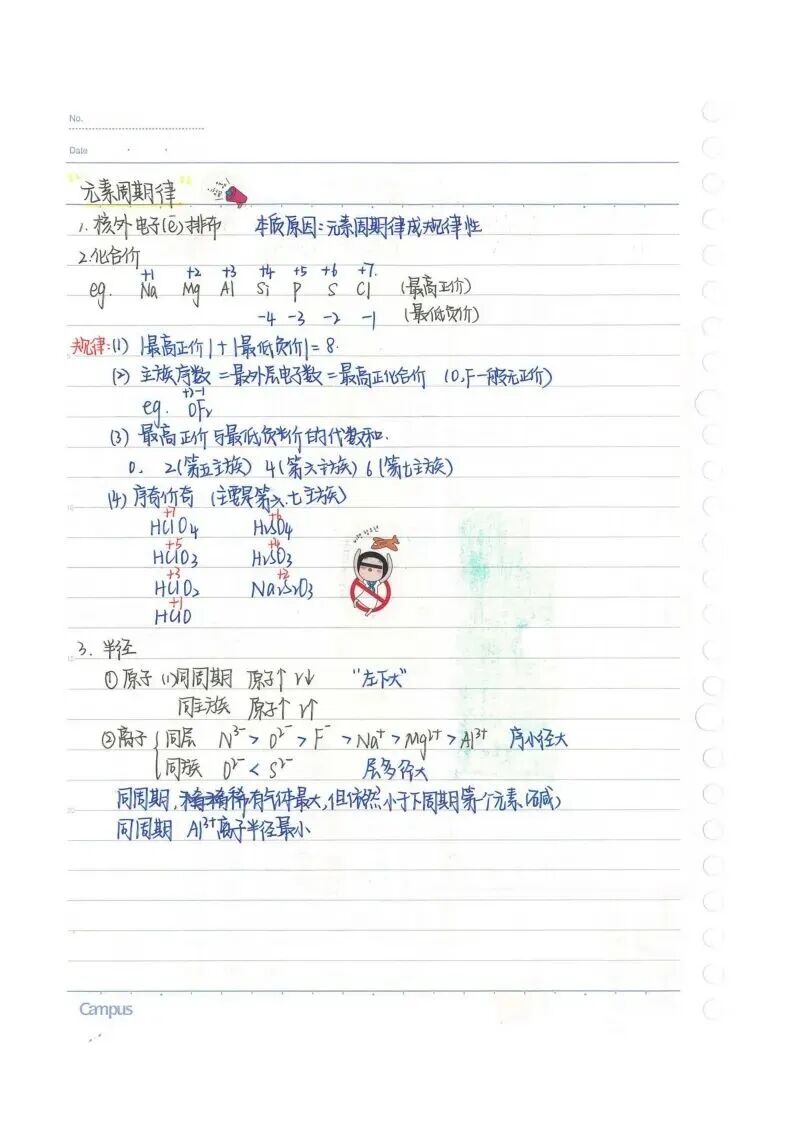 No.
Date
元素周期律
1. 核外电子(ē)排布 本质原因=元素周期律成规律性
2.化合价
+1 +2 +3 +4 +5 +6 +7
eg. Na Mg Al Si P S Cl (最高正价)
-4 -3 -2 -1 (最低负价)
规律:(1) |最高正价|+|最低负价|=8.
(2) 主族序数=最外层电子数=最高正化合价 (O,F一般无正价)
+2 -1
eg. OF₂
(3) 最高正价与最低负价的代数和.
0. 2(第五主族) 4(第六主族) 6(第七主族)
(4) 序奇价奇 (主要是第六.七主族)
+7 +6
HClO₄ H₂SO₄
+5 +4
HClO₃ H₂SO₃
+3 +2
HClO₂ Na₂S₂O₃
+1
HClO
3. 半径
①原子 (1)同周期 原子↑ r↓ "左下大"
同主族 原子↑ r↑
②离子 同层 N³⁻ > O²⁻ > F⁻ > Na⁺ > Mg²⁺ > Al³⁺ 序小径大
同族 O²⁻ < S²⁻ 层多径大
同周期,稀有气体最大,但依然小于下周期第一个元素(碱)
同周期 Al³⁺离子半径最小
Campus